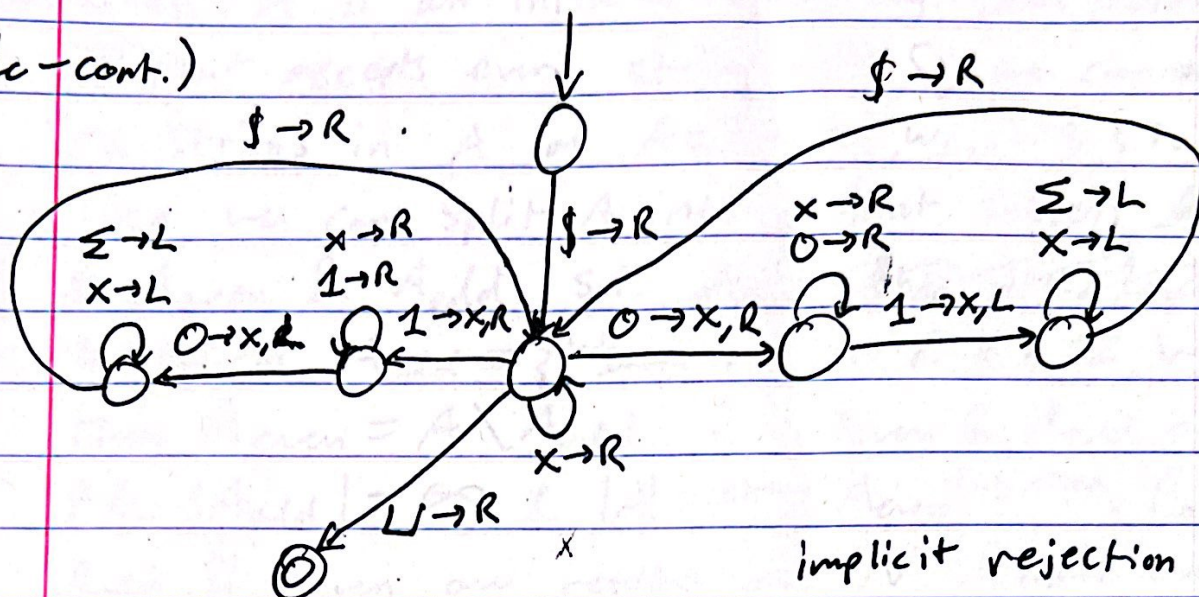 c - cont.)
$ → R
$ → R
$ → R
Σ → L
x → L
x → R
1 → R
x → R
0 → R
Σ → L
x → L
0 → x,
1 → x, R
0 → x, R
1 → x, L
x → R
⊔ → R
x
implicit rejection